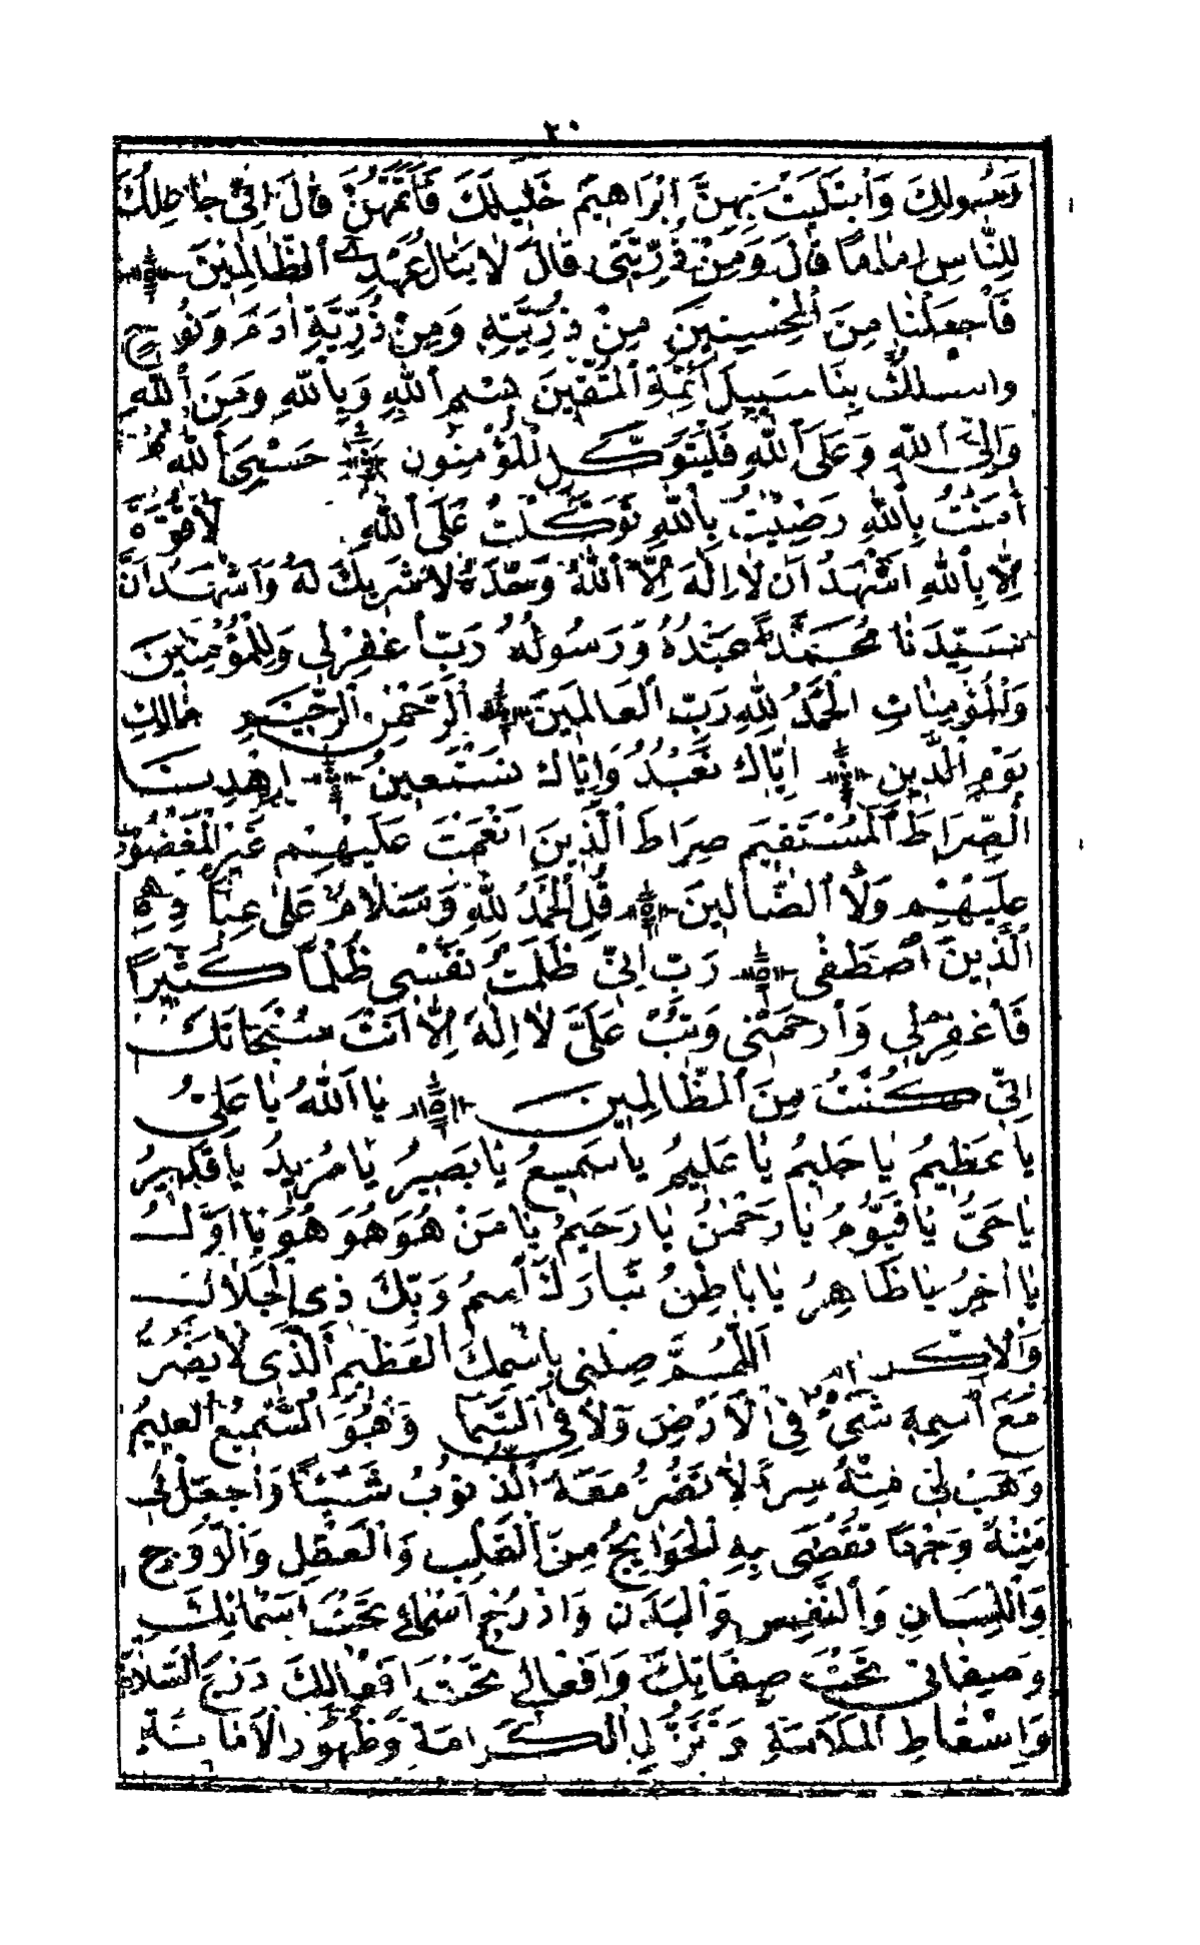 ٢٠
رَسُولِكَ وَاَبْتَلَيْتَ بِهِنَّ اِبْرَاهِيمَ خَلِيلَكَ فَاَتَمَّهُنَّ قَالَ اِنِّي جَاعِلُكَ
لِلنَّاسِ اِمَامًا قَالَ وَمِنْ ذُرِّيَّتِي قَالَ لَا يَنَالُ عَهْدِي الظَّالِمِينَ
فَاَجْعَلْنَا مِنَ الْمُحْسِنِينَ مِنْ ذُرِّيَّتِهِ وَمِنْ ذُرِّيَّةِ اٰدَمَ وَنُوحٍ
وَاسْلُكْ بِنَا سَبِيلَ اَئِمَّةِ الْمُتَّقِينَ بِسْمِ اللهِ وَبِاللهِ وَمِنَ اللهِ
وَاِلَى اللهِ وَعَلَى اللهِ فَلْيَتَوَكَّلِ الْمُؤْمِنُونَ حَسْبِيَ اللهُ
اٰمَنْتُ بِاللهِ رَضِيْتُ بِاللهِ تَوَكَّلْتُ عَلَى اللهِ لَا قُوَّةَ
اِلَّا بِاللهِ اَشْهَدُ اَنْ لَا اِلٰهَ اِلَّا اللهُ وَحْدَهُ لَا شَرِيكَ لَهُ وَاَشْهَدُ اَنَّ
سَيِّدَنَا مُحَمَّدًا عَبْدُهُ وَرَسُولُهُ رَبِّ اغْفِرْ لِي وَلِلْمُؤْمِنِينَ
وَالْمُؤْمِنَاتِ الْحَمْدُ لِلّٰهِ رَبِّ الْعَالَمِينَ الرَّحْمٰنِ الرَّحِيمِ مَالِكِ
يَوْمِ الدِّينِ اِيَّاكَ نَعْبُدُ وَاِيَّاكَ نَسْتَعِينُ اِهْدِنَا
الصِّرَاطَ الْمُسْتَقِيمَ صِرَاطَ الَّذِينَ اَنْعَمْتَ عَلَيْهِمْ غَيْرِ الْمَغْضُوبِ
عَلَيْهِمْ وَلَا الضَّالِّينَ قُلِ الْحَمْدُ لِلّٰهِ وَسَلَامٌ عَلٰى عِبَادِهِ
الَّذِينَ اصْطَفٰى رَبِّ اِنِّي ظَلَمْتُ نَفْسِي ظُلْمًا كَثِيرًا
فَاغْفِرْ لِي وَارْحَمْنِي وَتُبْ عَلَيَّ لَا اِلٰهَ اِلَّا اَنْتَ سُبْحَانَكَ
اِنِّي كُنْتُ مِنَ الظَّالِمِينَ يَا اَللهُ يَا عَلِيُّ
يَا عَظِيمُ يَا حَلِيمُ يَا عَلِيمُ يَا سَمِيعُ يَا بَصِيرُ يَا مُرِيدُ يَا قَدِيرُ
يَا حَيُّ يَا قَيُّومُ يَا رَحْمٰنُ يَا رَحِيمُ يَا مَنْ هُوَ هُوَ هُوَ يَا اَوَّلُ
يَا اٰخِرُ يَا ظَاهِرُ يَا بَاطِنُ تَبَارَكَ اسْمُ رَبِّكَ ذِي الْجَلَالِ
وَالْاِكْرَامِ اَللّٰهُمَّ صِلْنِي بِاسْمِكَ الْعَظِيمِ الَّذِي لَا يَضُرُّ
مَعَ اسْمِهِ شَيْءٌ فِي الْاَرْضِ وَلَا فِي السَّمَاءِ وَهُوَ السَّمِيعُ الْعَلِيمُ
وَهَبْ لِي مِنْهُ سِرًّا لَا تَضُرُّ مَعَهُ الذُّنُوبُ شَيْئًا وَاجْعَلْ لِي
مِنْهُ وَجْهًا تُقْضٰى بِهِ الْحَوَائِجُ مِنَ الْقَلْبِ وَالْعَقْلِ وَالرُّوحِ
وَاللِّسَانِ وَالنَّفْسِ وَالْبَدَنِ وَادْرُجْ اَسْمَائِي تَحْتَ اَسْمَائِكَ
وَصِفَاتِي تَحْتَ صِفَاتِكَ وَاَفْعَالِي تَحْتَ اَفْعَالِكَ دَرْجَ السَّلَامَةِ
وَاِسْقَاطِ الْمَلَامَةِ وَتَنَزُّلِ الْكَرَامَةِ وَظُهُورِ الْاِمَامَةِ